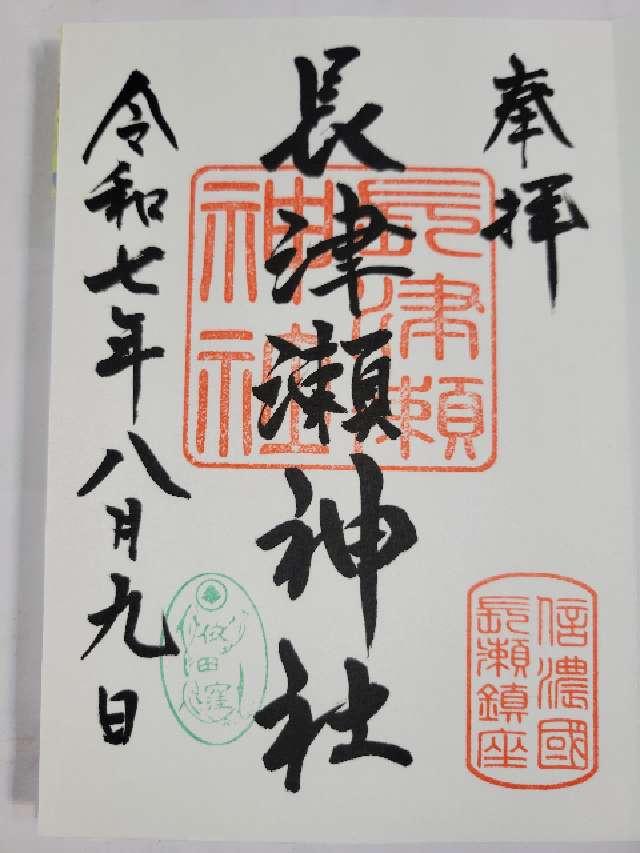 奉拝
長津瀬神社
令和七年八月九日
長津瀬
神社
信濃國
長瀬鎮座